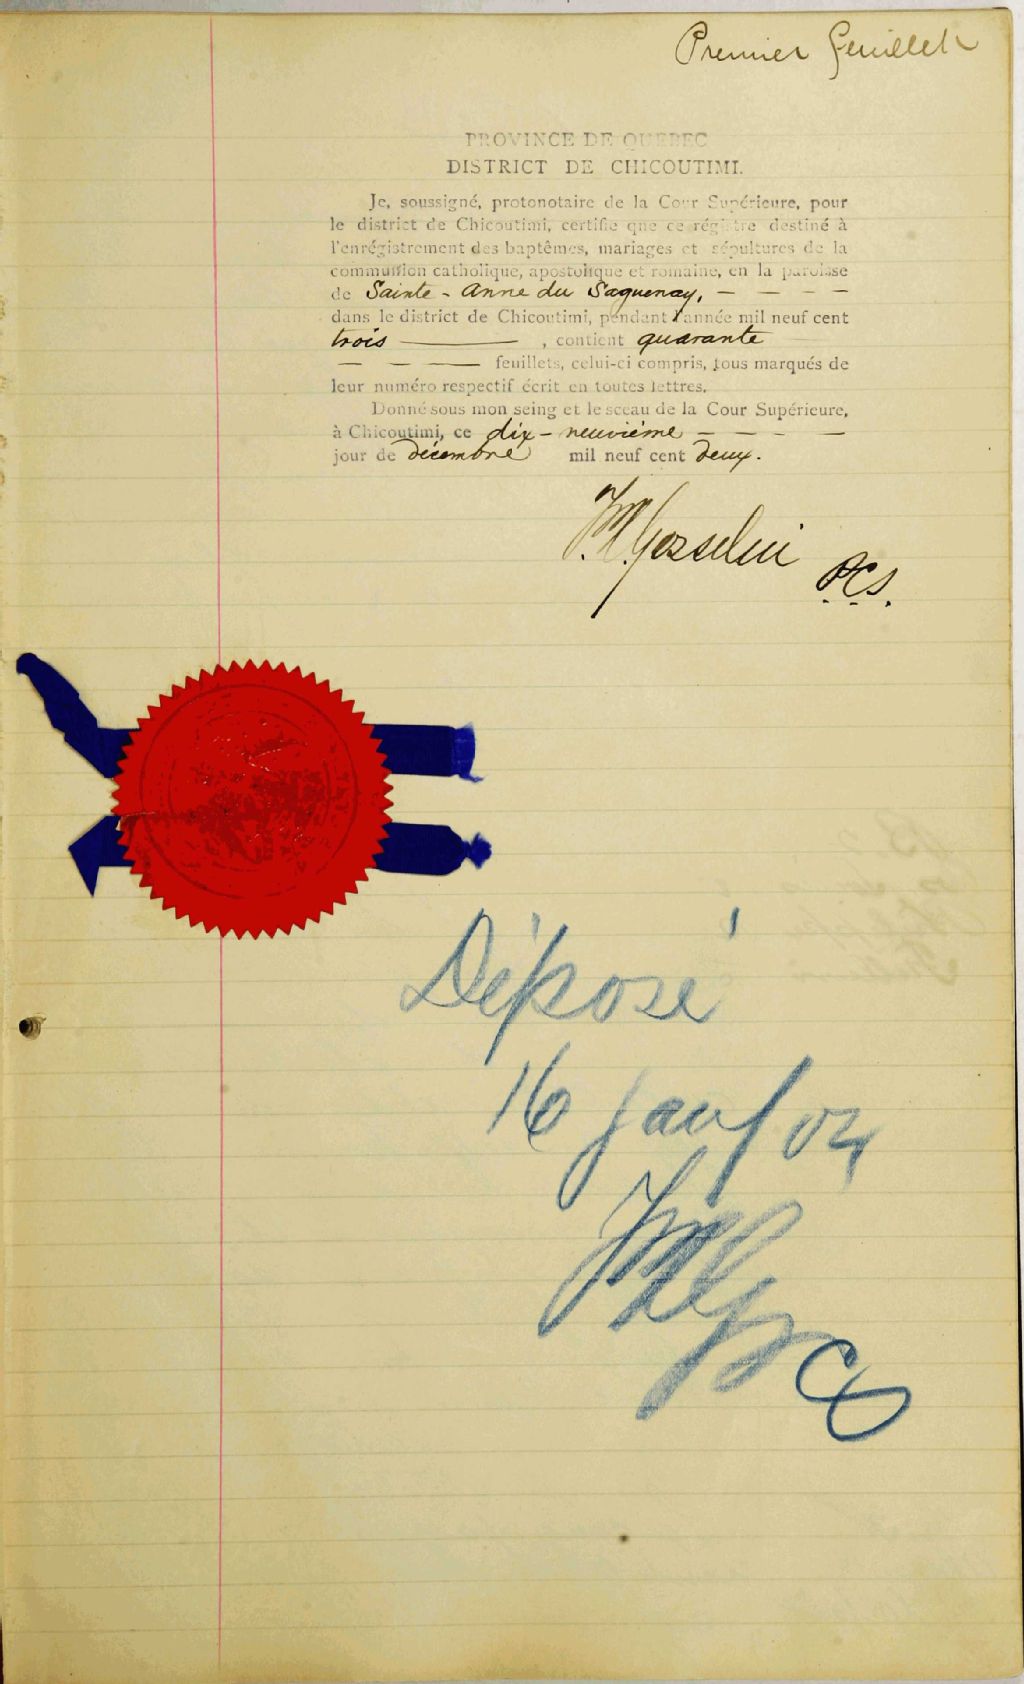 Premier feuillet
PROVINCE DE QUEBEC
DISTRICT DE CHICOUTIMI.
Je, soussigné, protonotaire de la Cour Supérieure, pour
le district de Chicoutimi, certifie que ce régistre destiné à
l'enrégistrement des baptêmes, mariages et sépultures de la
communion catholique, apostolique et romaine, en la paroisse
de Sainte-Anne du Saguenay, — — — —
dans le district de Chicoutimi, pendant l'année mil neuf cent
trois ———, contient quarante
— — —— feuillets, celui-ci compris, tous marqués de
leur numéro respectif écrit en toutes lettres.
Donné sous mon seing et le sceau de la Cour Supérieure,
à Chicoutimi, ce dix-neuvième — — — —
jour de décembre mil neuf cent deux.
Gosselin
P.C.S.
Déposé
16 janv 04